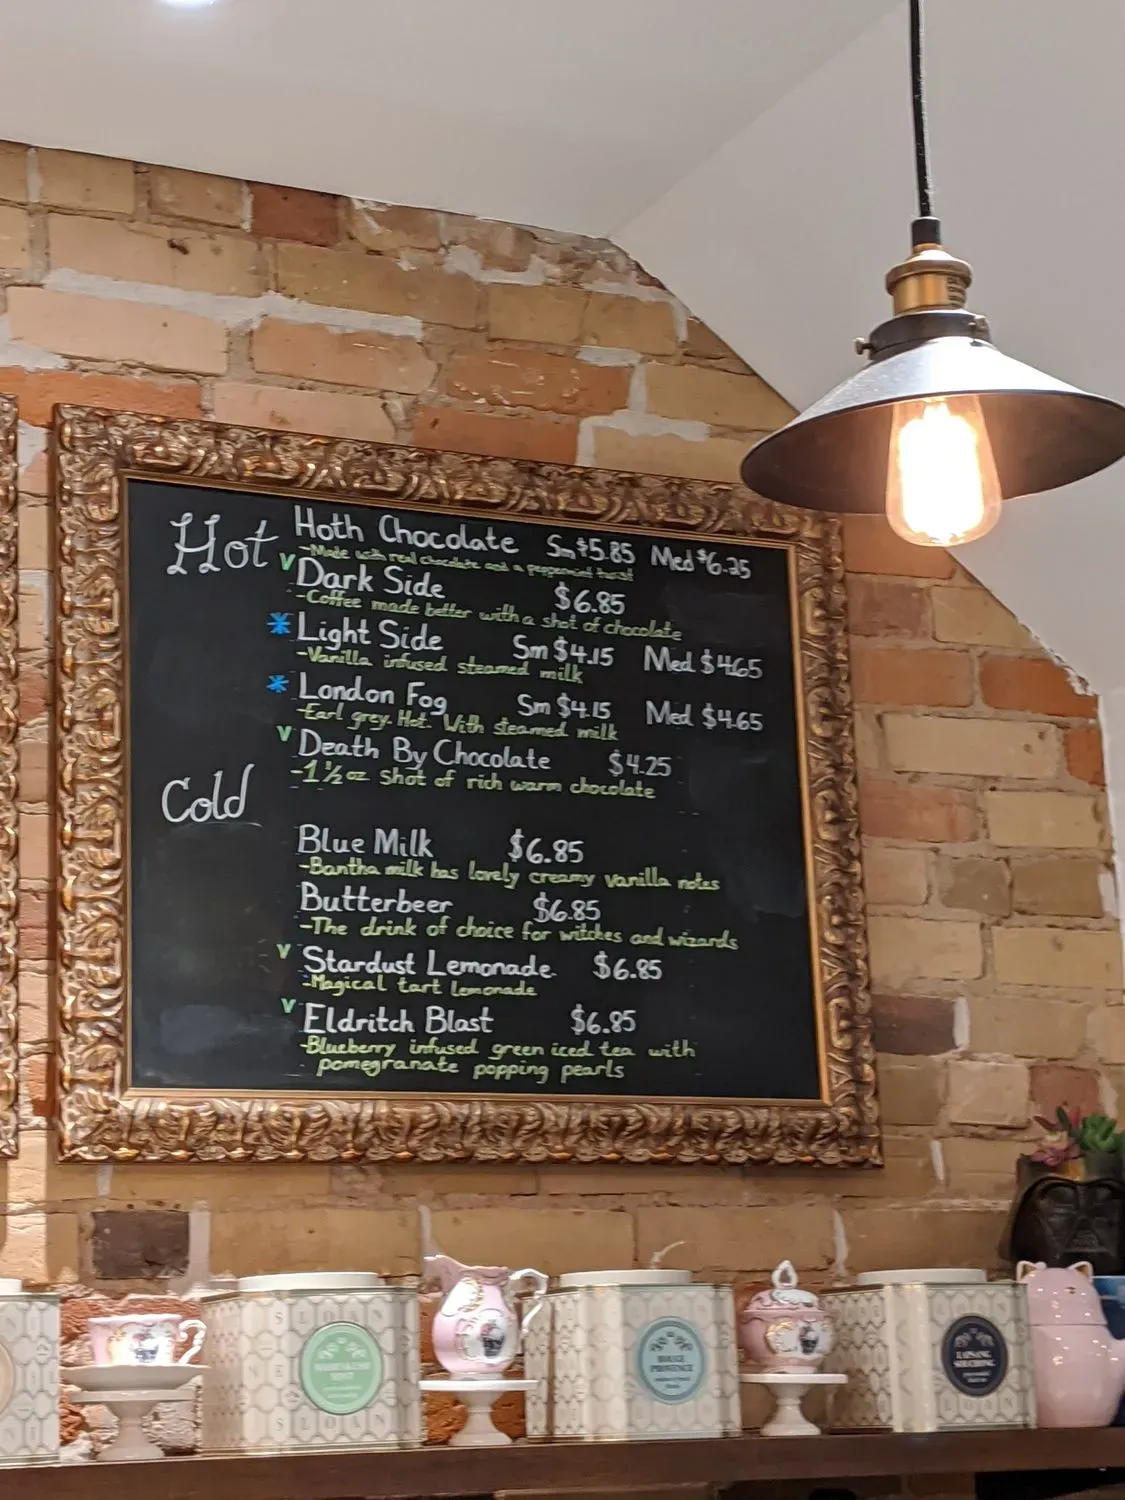 Hot
Hoth Chocolate Sm $5.85 Med $6.25
V
-Made with real chocolate and a peppermint twist
Dark Side $6.85
-Coffee made better with a shot of chocolate
* Light Side Sm $4.15 Med $4.65
-Vanilla infused steamed milk
* London Fog Sm $4.15 Med $4.65
-Earl grey. Hot. With steamed milk
V Death By Chocolate $4.25
-1½oz shot of rich warm chocolate
Cold
Blue Milk $6.85
-Bantha milk has lovely creamy vanilla notes
Butterbeer $6.85
-The drink of choice for witches and wizards
V Stardust Lemonade $6.85
-Magical tart lemonade
V Eldritch Blast $6.85
-Blueberry infused green iced tea with
pomegranate popping pearls
SLOAN
MARRAKESH
MINT
SLOAN
ROUGE
PROVENCE
LOAN
LAPSANG
SOUCHONG
LOAN